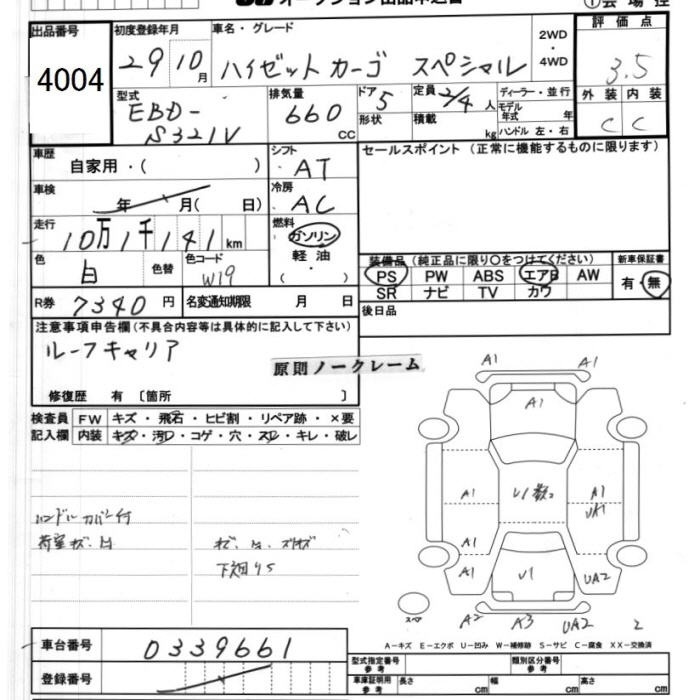 オークション出品申込書
①会場控
出品番号 4004
初度登録年月 29 10月
車名・グレード ハイゼットカーゴ スペシャル
2WD・4WD
評価点 3.5
外装 内装
C C
型式 EBD-S321V
排気量 660 cc
ドア 5
形状
定員 2/4 人
積載 kg
ディーラー・並行
モデル年式 年
ハンドル 左・右
車歴 自家用・( )
シフト AT
セールスポイント (正常に機能するものに限ります)
車検 年 月( 日)
冷房 AC
走行 10万1千141km
燃料 ガソリン・軽油・( )
色 白 色替
色コード W19
装備品 (純正品に限り○をつけてください)
新車保証書 有・無
PS PW ABS エアB AW
SR ナビ TV カワ
R券 7340円
名変通知期限 月 日
後日品
注意事項申告欄 (不具合内容等は具体的に記入して下さい)
ルーフキャリア
原則ノークレーム
修復歴 有 〔箇所 〕
検査員記入欄
FW キズ・飛石・ヒビ割・リペア跡・×要
内装 キズ・汚レ・コゲ・穴・スレ・キレ・破レ
ハンドルカバー付
荷室キズ、凹
キズ、凹、ズリキズ
下廻りS
A1 A1
A1
A1 U1数コ A1
UA1
A1 A1 U1 UA2
スペア A2 A3 UA2 2
車台番号 0339661
登録番号
A－キズ E－エクボ U－凹み W－補修跡 S－サビ C－腐食 XX－交換済
型式指定番号 参考
類別区分番号 参考
車庫証明用 参考 長さ cm 幅 cm 高さ cm